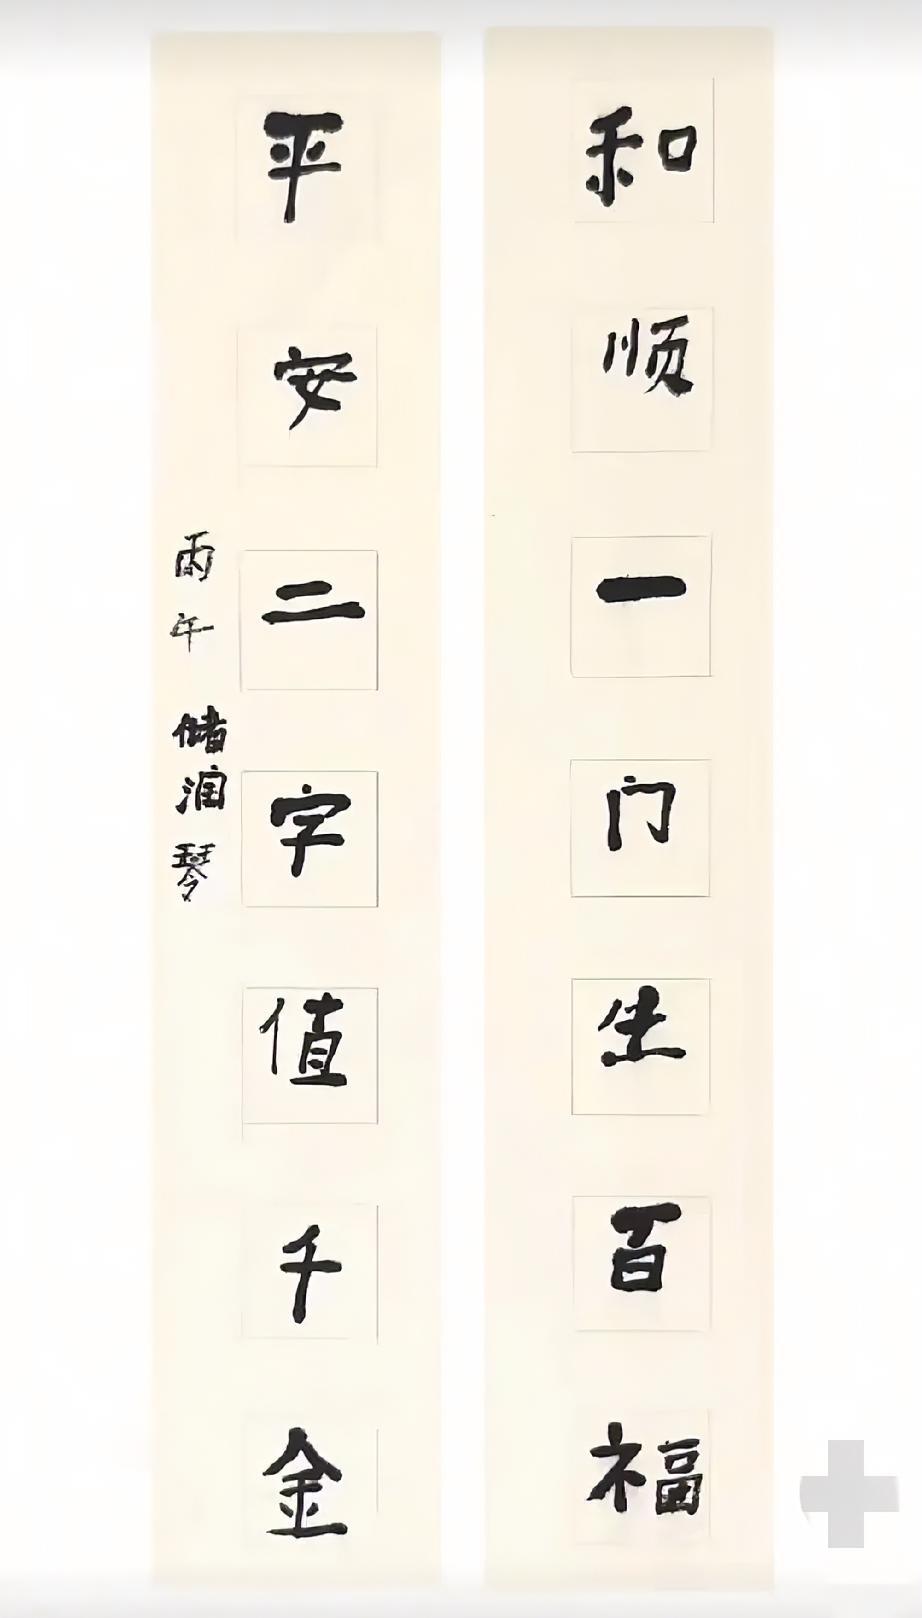 和顺一门生百福
平安二字值千金
丙午 储润琴